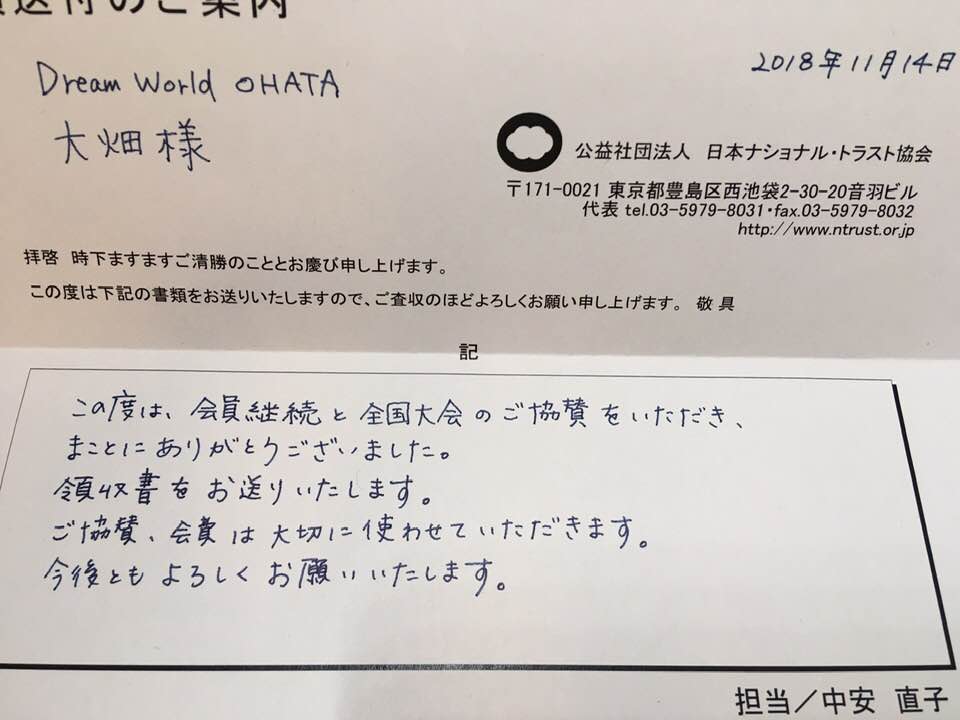 送付のご案内
2018年11月14日
Dream World OHATA
大畑様
公益社団法人 日本ナショナル・トラスト協会
〒171-0021 東京都豊島区西池袋2-30-20音羽ビル
代表 tel.03-5979-8031・fax.03-5979-8032
http://www.ntrust.or.jp
拝啓 時下ますますご清勝のこととお慶び申し上げます。
この度は下記の書類をお送りいたしますので、ご査収のほどよろしくお願い申し上げます。 敬具
記
この度は、会員継続と全国大会のご協賛をいただき、
まことにありがとうございました。
領収書をお送りいたします。
ご協賛、会費は大切に使わせていただきます。
今後ともよろしくお願いいたします。
担当/中安 直子